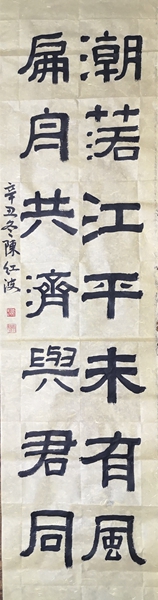 潮落江平未有風
扁舟共濟與君同
辛丑冬陳紅波